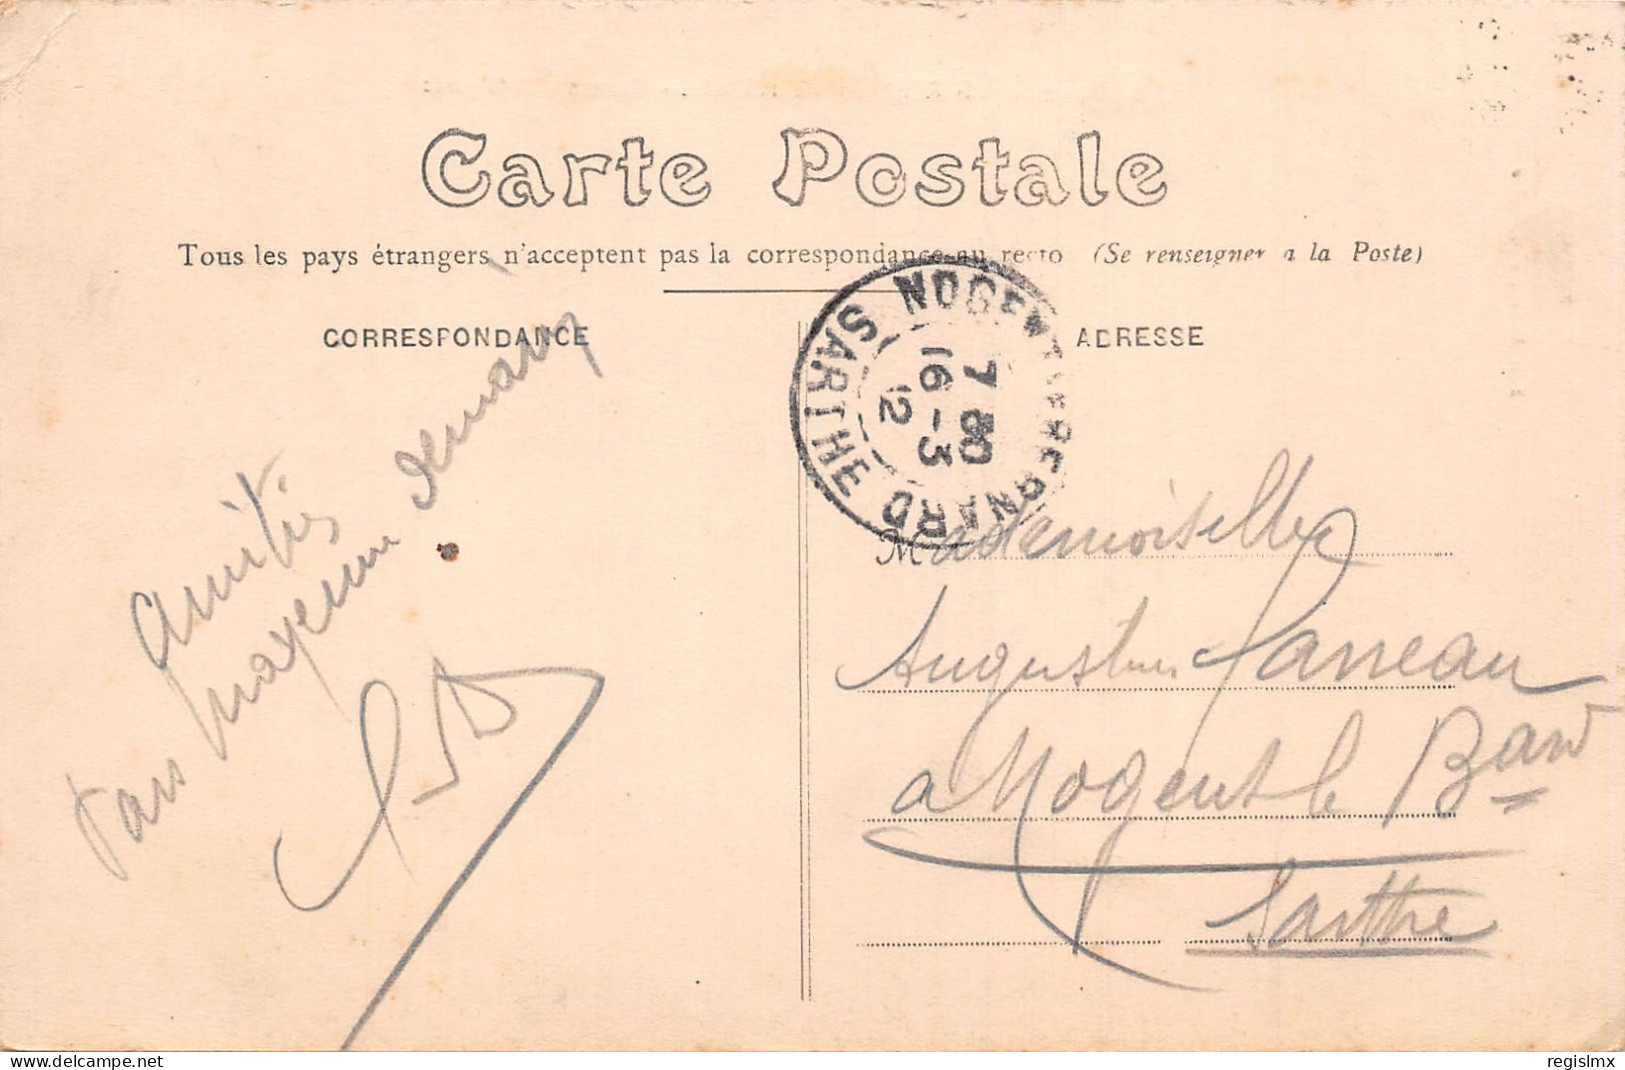 Carte Postale
Tous les pays étrangers n'acceptent pas la correspondance au recto (Se renseigner a la Poste)
CORRESPONDANCE
ADRESSE
NOGENT LE BERNARD
SARTHE
7 30
16 - 3
12
Amitiés
pars Mayenne demain
Mademoiselle
Augustine
a Nogent le Bard
Sarthe
delcampe.net
regislmx